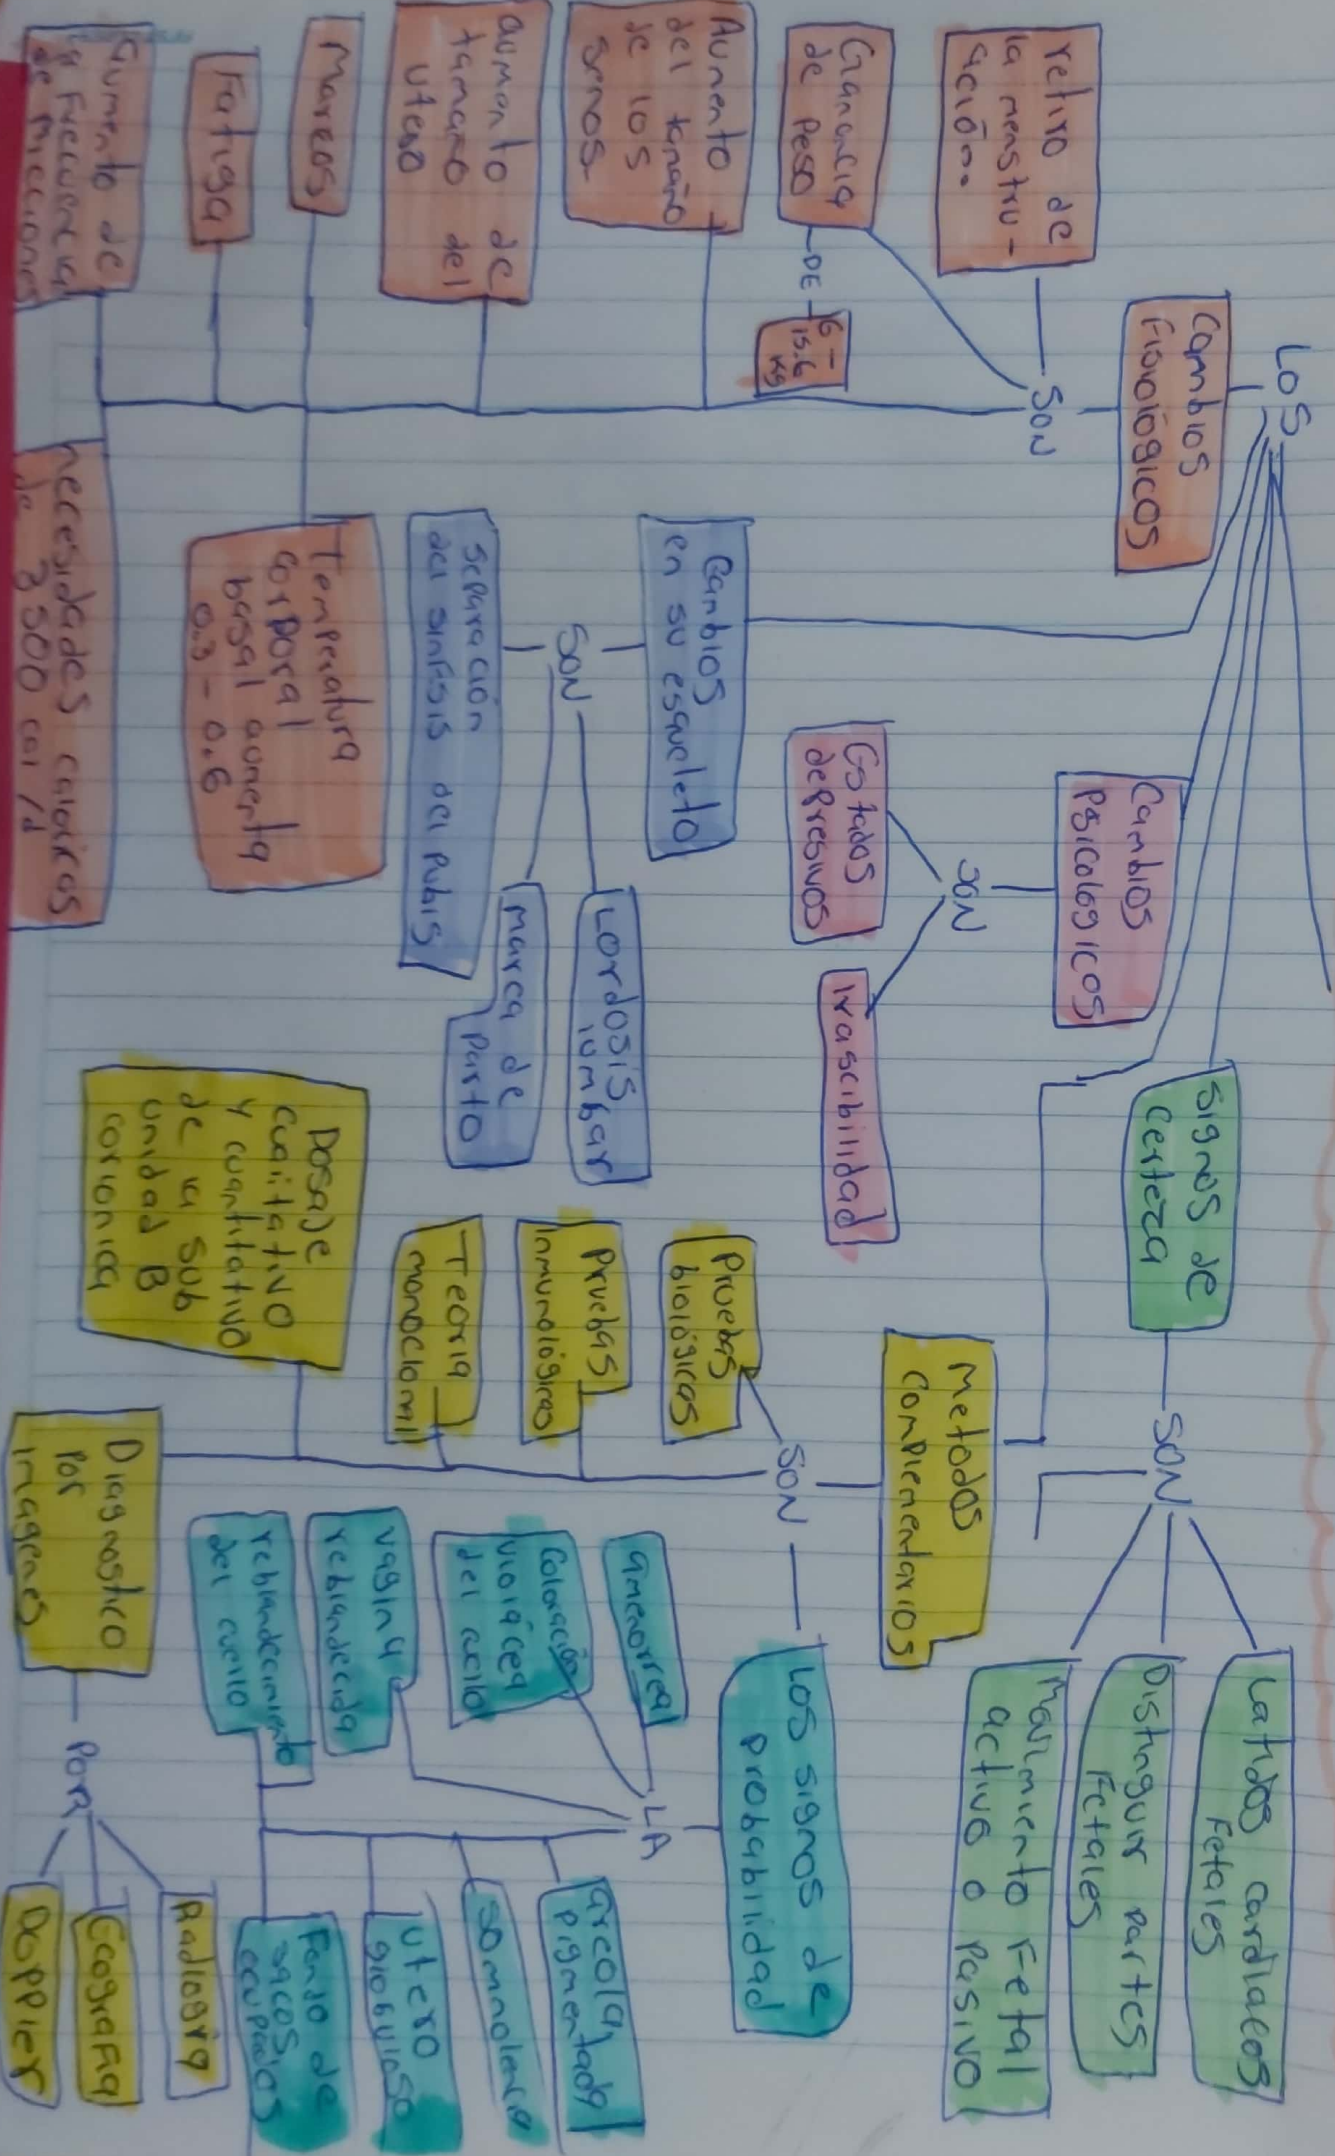 LOS
Cambios
Fisiológicos
SON
retiro de
la menstru-
ación..
Ganancia
de Peso
DE
6 -
15.6
Kg
Aumento
del tamaño
de los
senos
aumento de
tamaño del
utero
Mareos
Fatiga
aumento de
la Frecuencia
de micciones
Temperatura
corporal
basal aumenta
0.3 - 0.6
necesidades caloricas
de 3 500 cal /d
Cambios
en su esqueleto
SON
Lordosis
lumbar
marca de
parto
separación
del sinfisis del pubis
Cambios
Psicologicos
SON
Estados
depresivos
Irascibilidad
Signos de
Certeza
SON
Latidos cardiacos
Fetales
Distinguir partes
Fetales
Movimiento Fetal
activo o pasivo
Metodos
Complementarios
SON
Pruebas
biológicas
Pruebas
Inmunológicas
Teoria
monoclonal
Dosaje
Cualitativo
y cuantitativo
de la sub
unidad B
corionica
Diagnostico
por
imagenes
Por
Radiogria
Ecografia
Doppler
Los signos de
probabilidad
LA
amenorrea
Coloración
violácea
del cuello
vagina
reblandecida
reblandecimiento
del cuello
areola
pigmentada
somnolencia
utero
globuloso
Fondo de
sacos
ocupados